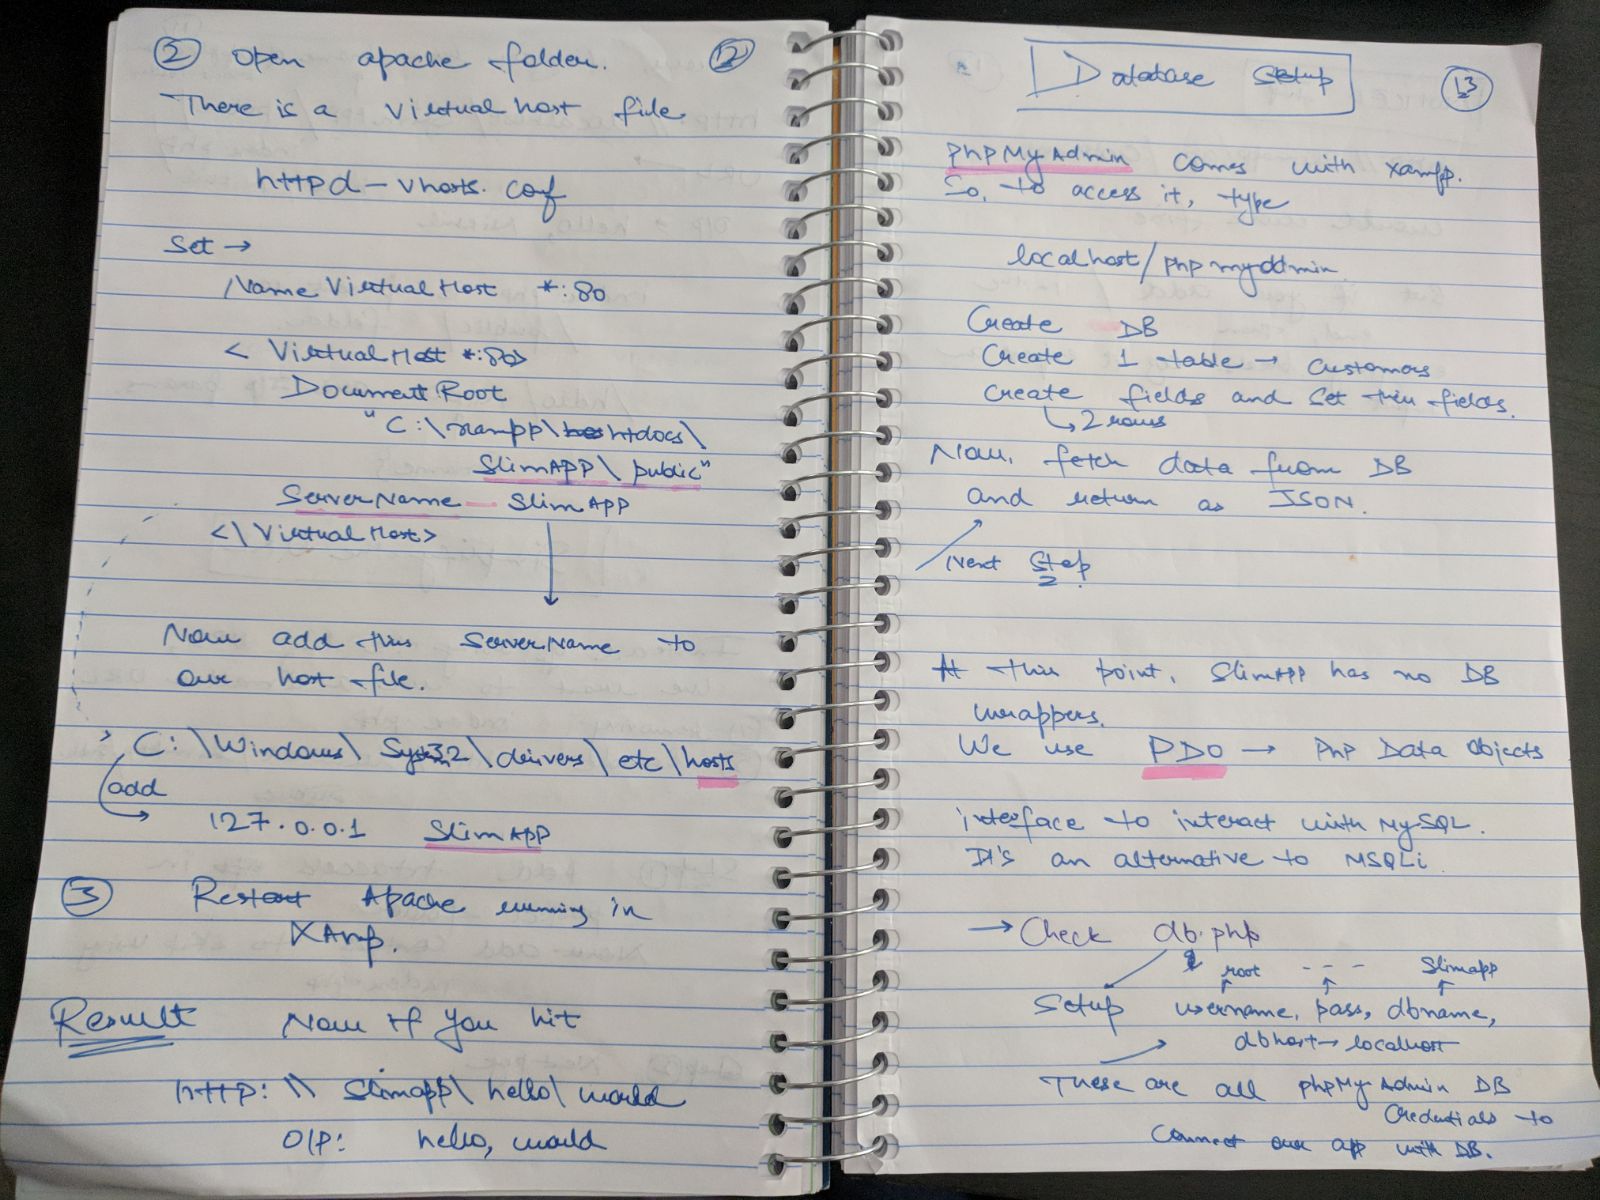 ② Open apache folder. ⑫
There is a Virtual host file
httpd-vhosts.conf
Set →
NameVirtualHost *:80
< VirtualHost *:80>
Document Root
"C:\xampp\htdocs\
SlimAPP\public"
ServerName — SlimAPP
<\ VirtualHost>
Now add this ServerName to
our host file.
C:\Windows\ System32\drivers\etc\hosts
add
127.0.0.1 SlimAPP
③ Restart Apache running in
XAmp.
Result Now if you hit
http:\\ Slimapp\ hello\ world
O/P: hello, world
Database Setup ⑬
phpMyAdmin comes with xampp.
So, to access it, type
localhost/phpmyadmin
Create DB
Create 1 table → customers
Create fields and set this fields.
↳ 2 rows
Now, fetch data from DB
and return as JSON.
Next Step
At this point, SlimAPP has no DB
wrappers.
We use PDO → Php Data Objects
interface to interact with MySQL.
It's an alternative to MSQLi
→ Check db.php
root - - - Slimapp
Setup username, pass, dbname,
dbhost → localhost
These are all phpMyAdmin DB
Credentials to
Connect our app with DB.